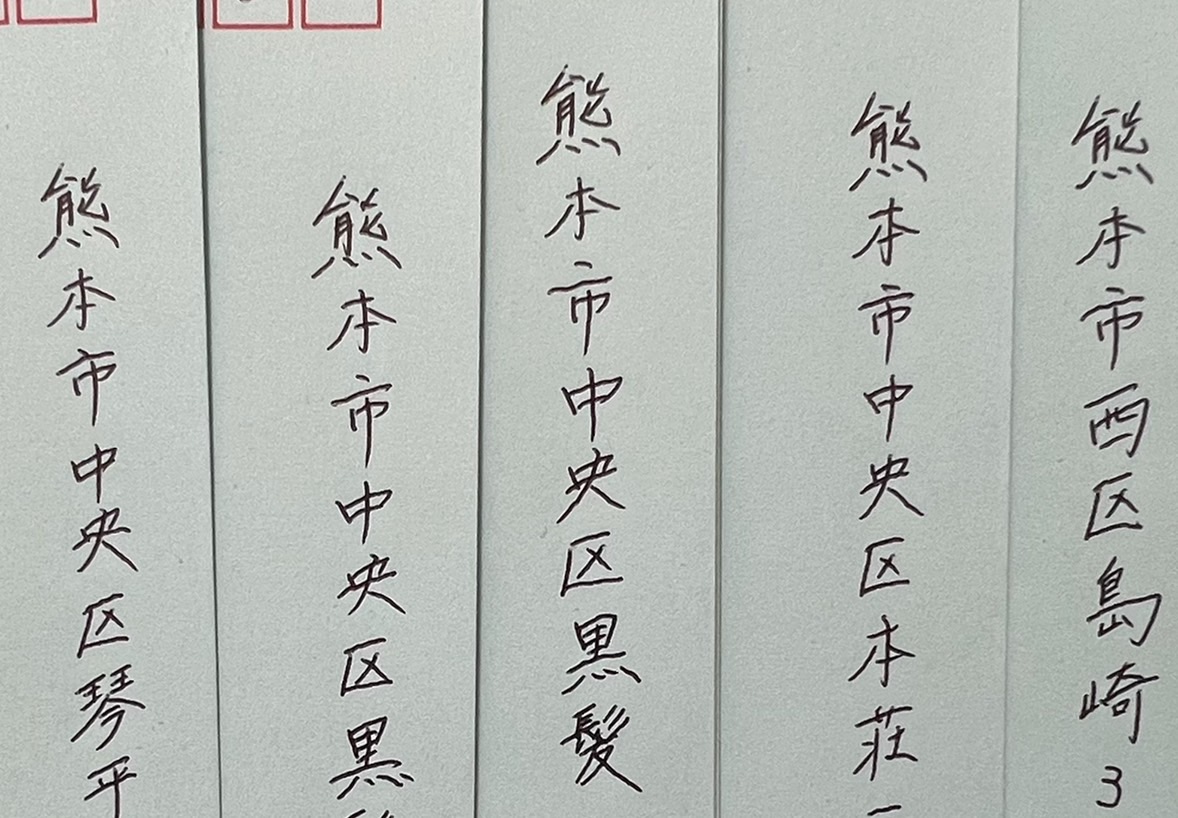 熊本市西区島崎3
熊本市中央区本荘
熊本市中央区黒髪
熊本市中央区黒
熊本市中央区琴平